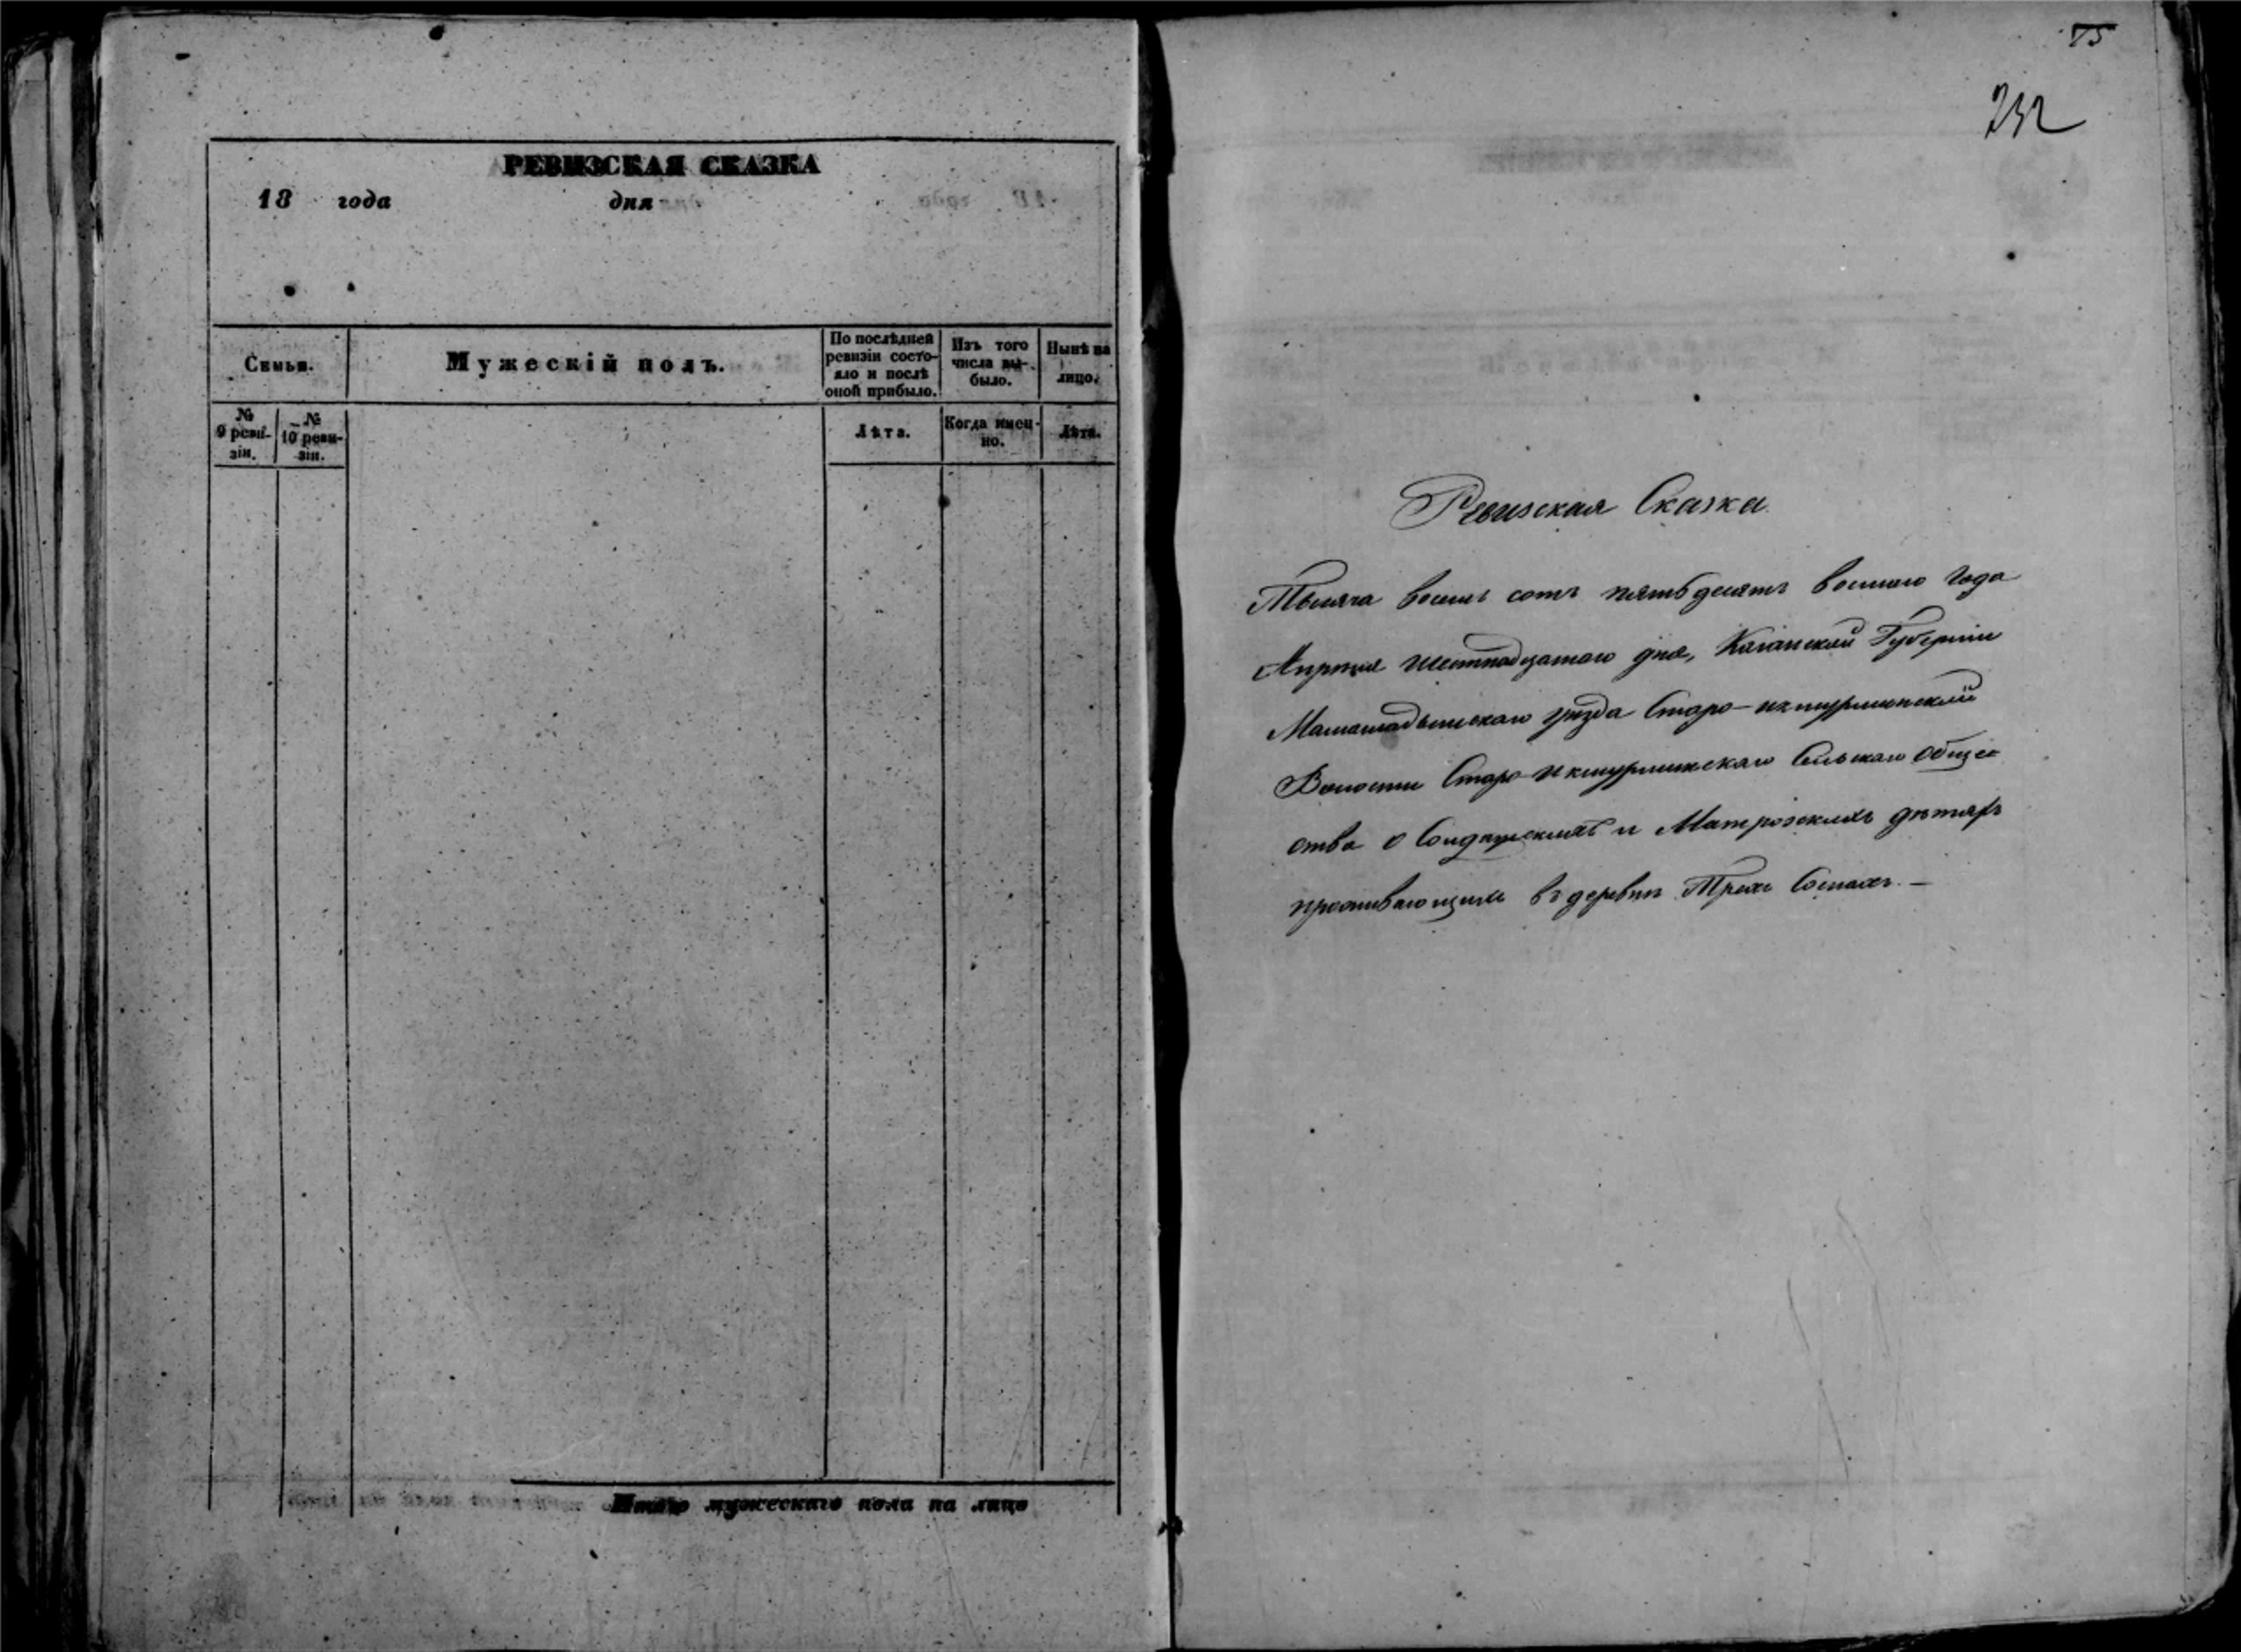 РЕВИЗСКАЯ СКАЗКА
18 года дня
Семьи.
Мужескій полъ.
По послѣдней ревизіи состо-
яло и послѣ оной прибыло.
Изъ того числа вы-
было.
Нынѣ на лицо.
№ 9 реви-
зіи.
№ 10 реви-
зіи.
Лѣта.
Когда имен-
но.
Лѣта.
Итого мужескаго пола на лицо
75
232
Ревизская Сказка
Тысяча восемь сотъ пятьдесятъ восьмаго года
Апрѣля шестнадцатаго дня, Казанской Губерніи
Мамадышскаго уѣзда Старо-икшурминской
Волости Старо-Икшурминскаго Сельскаго общес
ства о Солдатскихъ и Матрозскихъ дѣтяхъ
проживающихъ въ деревнѣ Трехъ Соснахъ. –